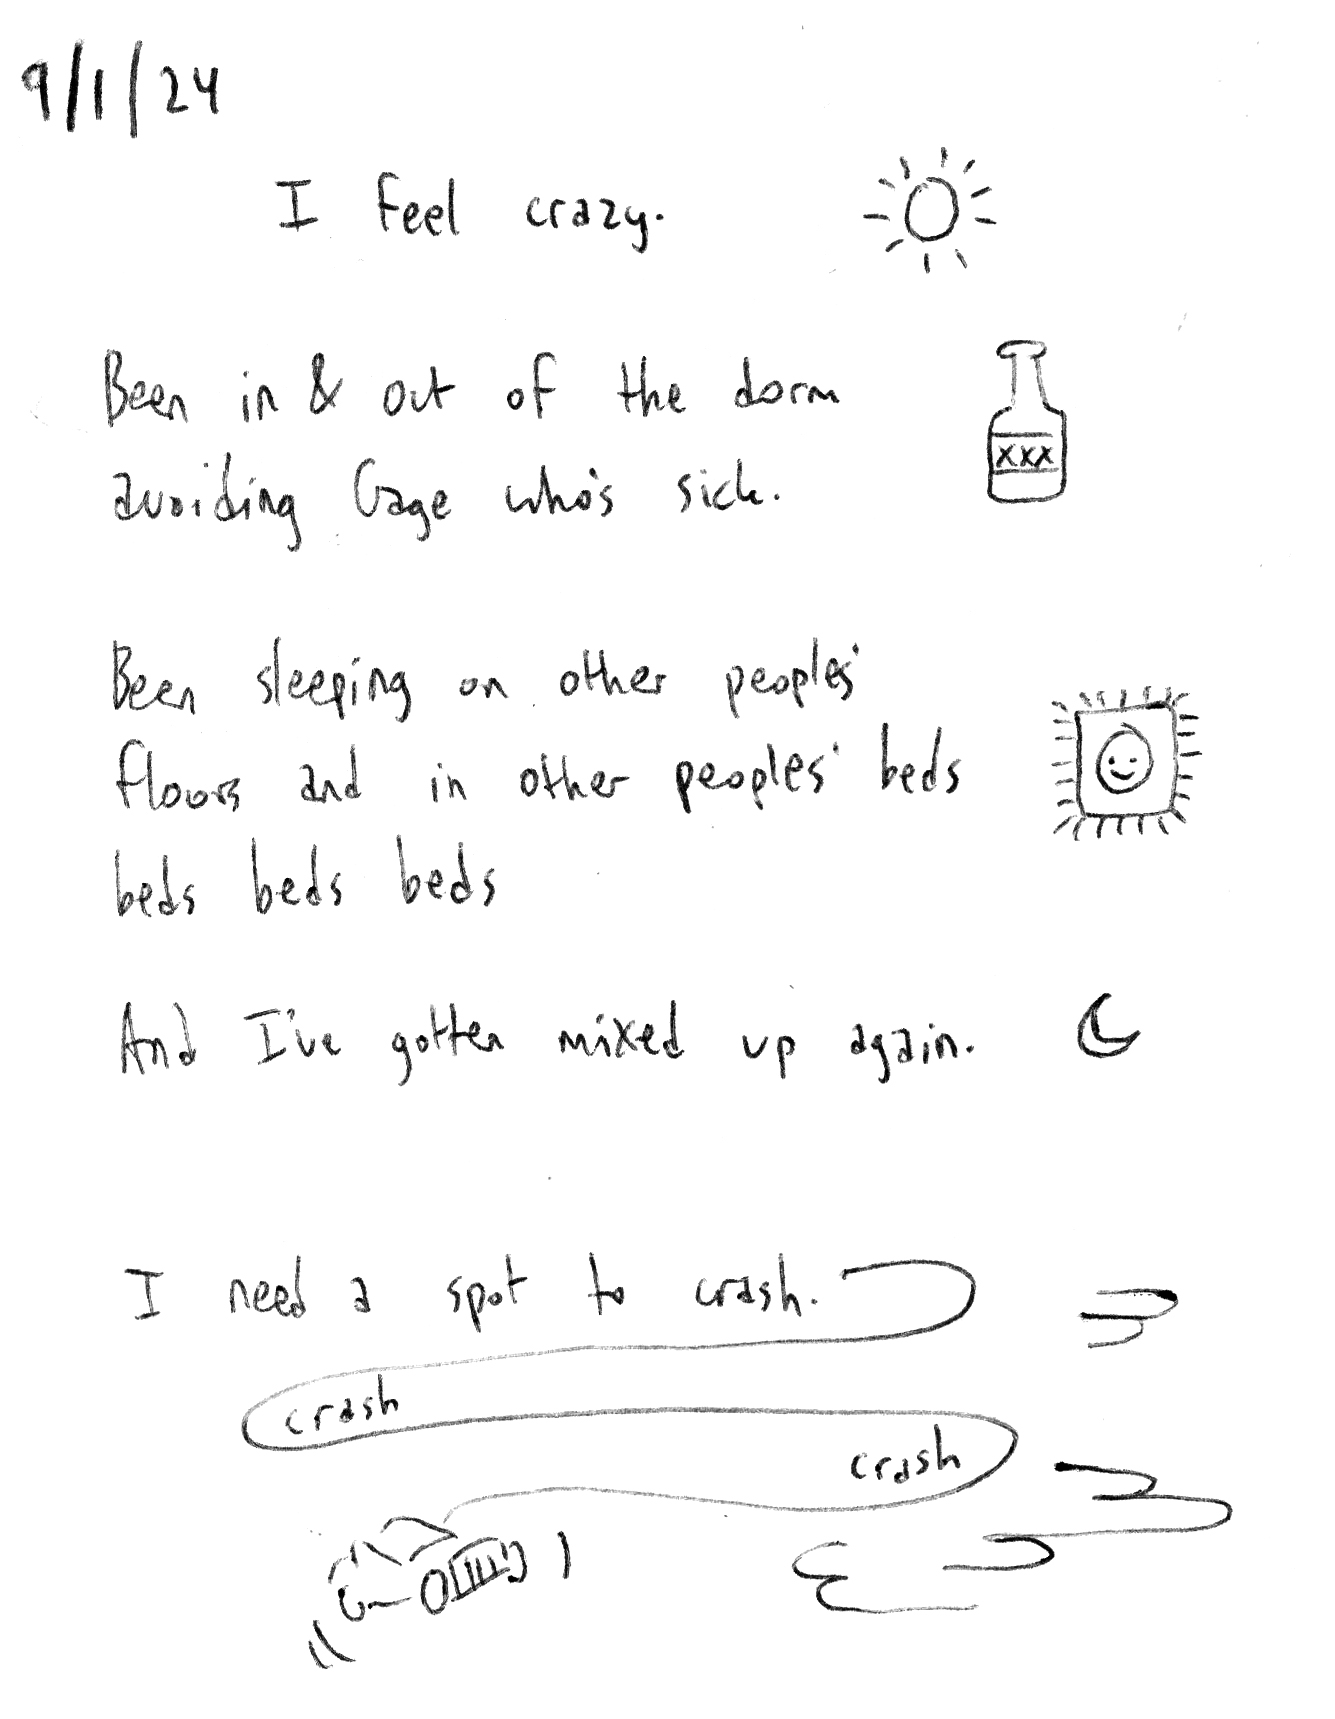 9/1/24
I feel crazy.
Been in & out of the dorm
avoiding Gage who's sick.
XXX
Been sleeping on other peoples'
floors and in other peoples' beds
beds beds beds
And I've gotten mixed up again.
I need a spot to crash.
crash
crash